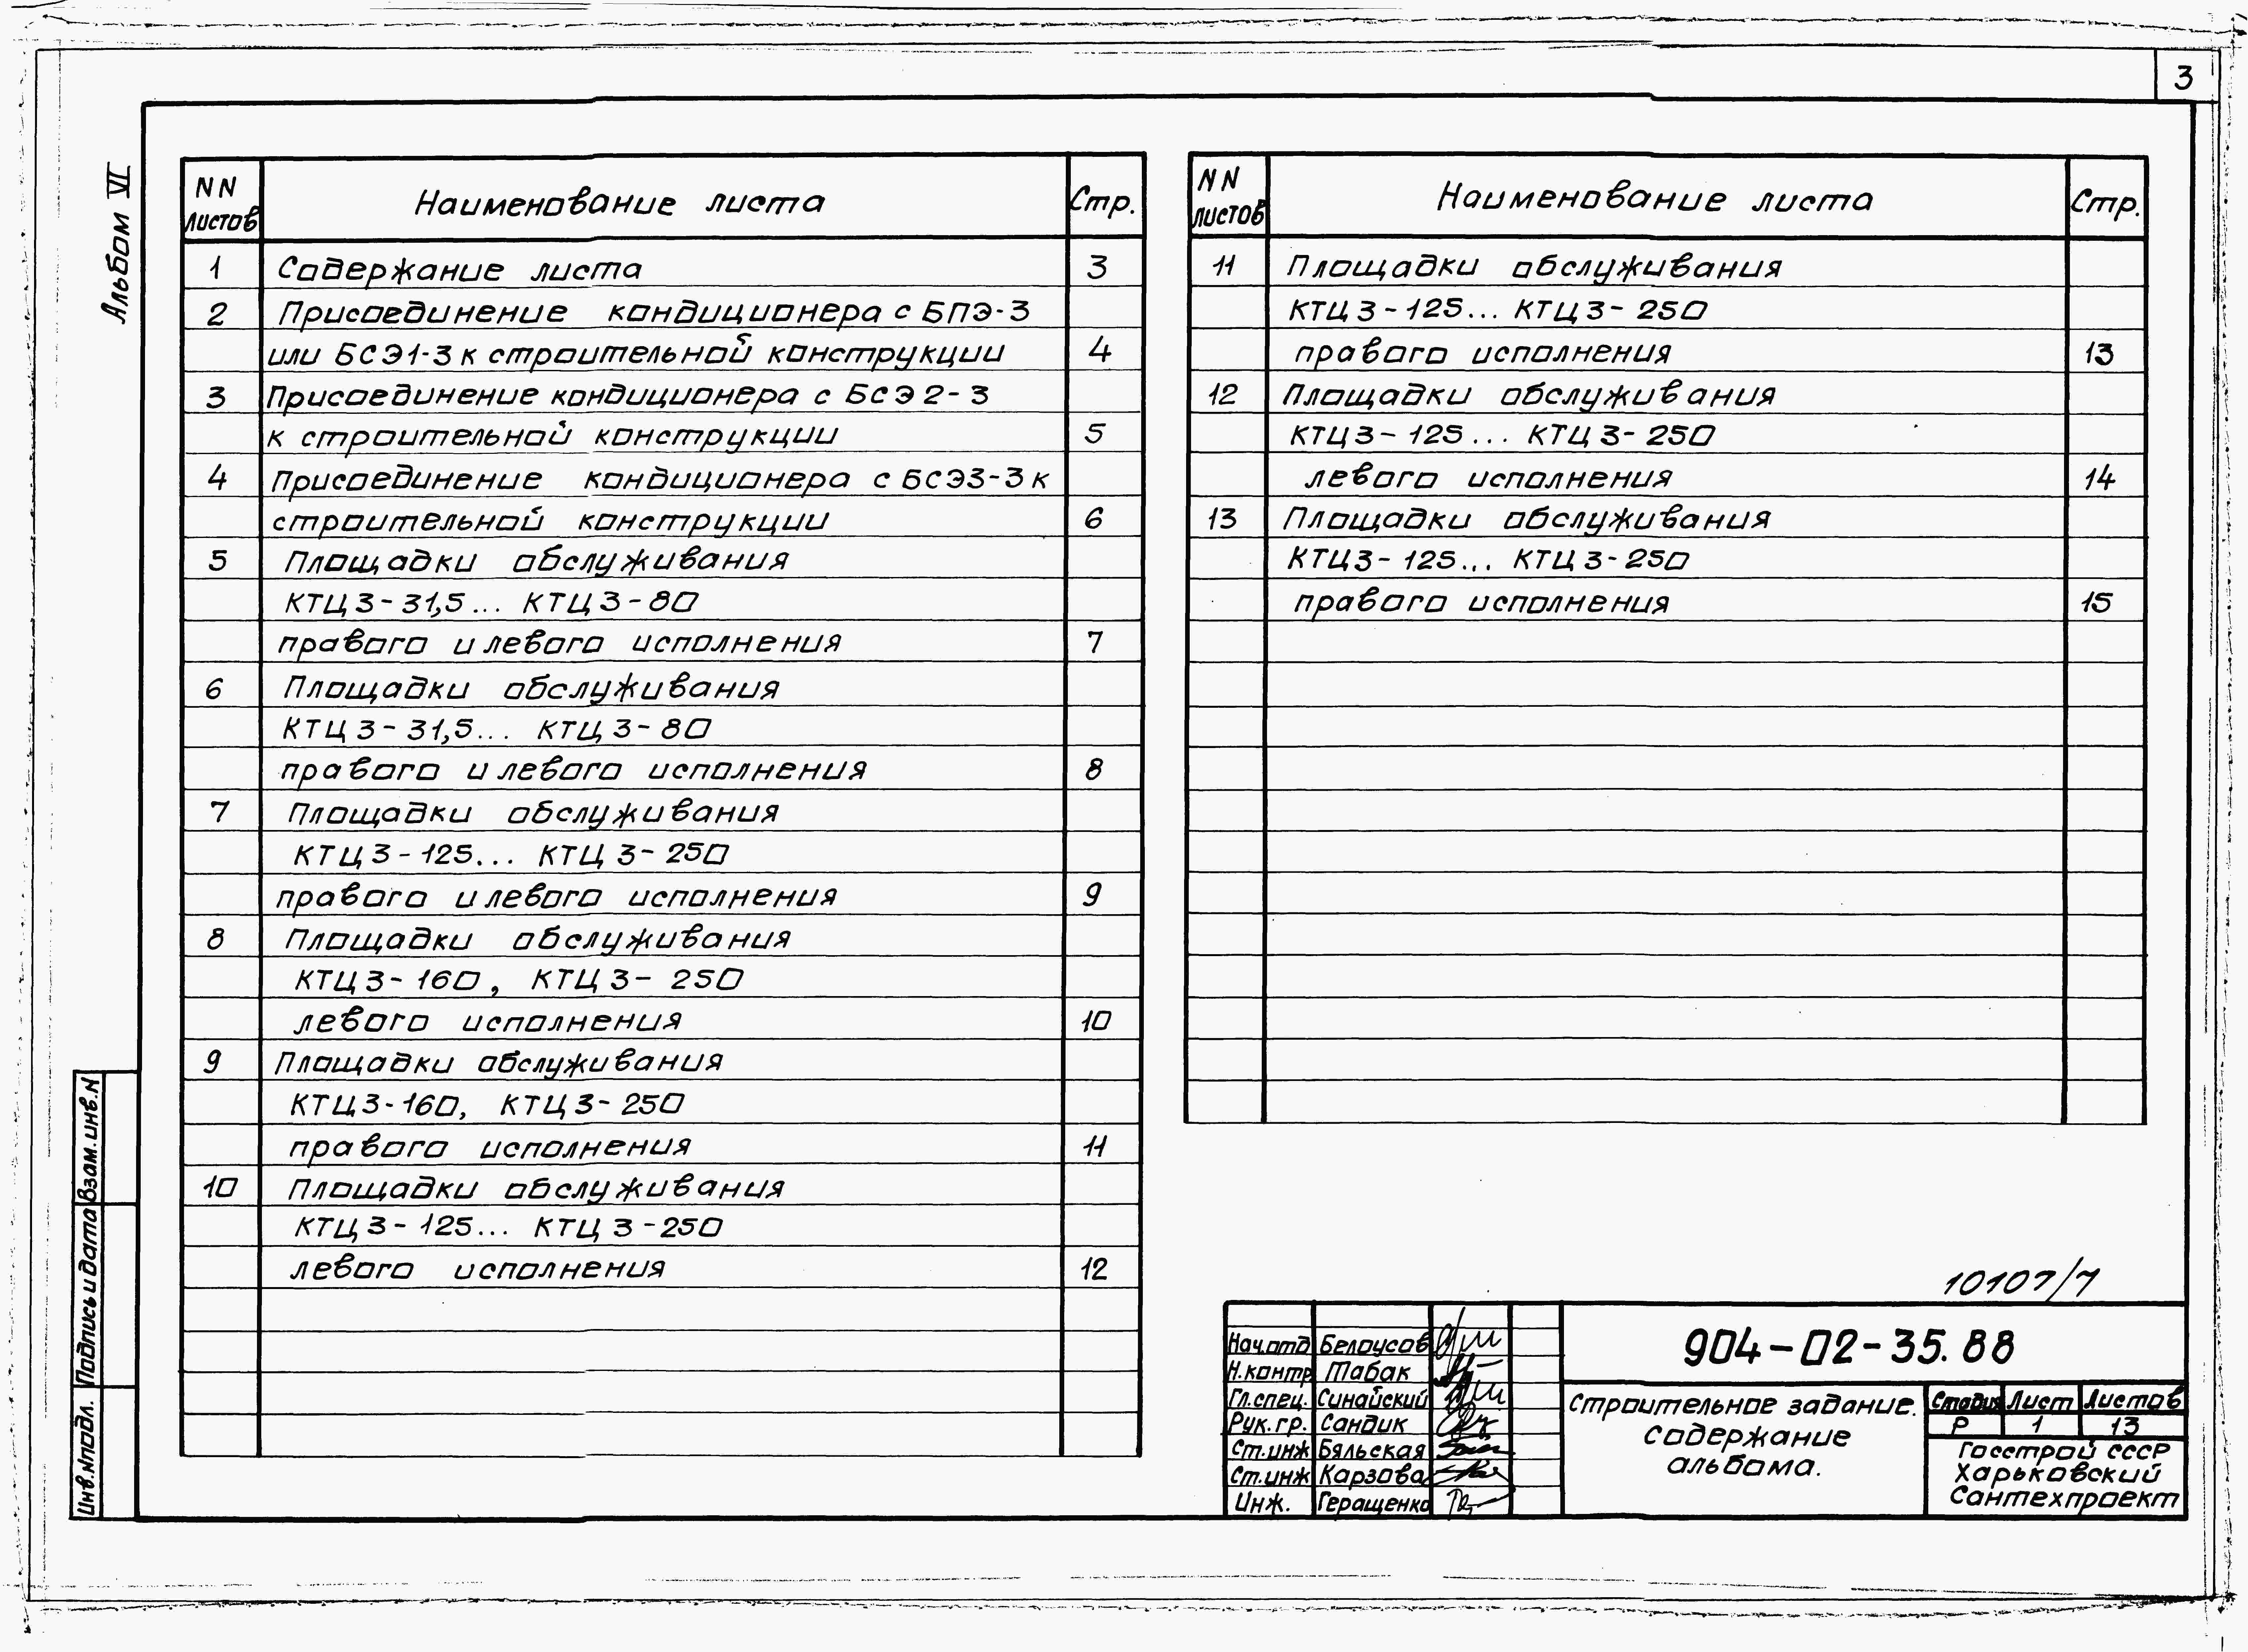 3
Альбом VI
NN листов Наименование листа Стр.
1 Содержание листа 3
2 Присоединение кондиционера с БПЭ-3
или БСЭ1-3 к строительной конструкции 4
3 Присоединение кондиционера с БСЭ2-3
к строительной конструкции 5
4 Присоединение кондиционера с БСЭ3-3 к
строительной конструкции 6
5 Площадки обслуживания
КТЦ3-31,5... КТЦ3-80
правого и левого исполнения 7
6 Площадки обслуживания
КТЦ3-31,5... КТЦ3-80
правого и левого исполнения 8
7 Площадки обслуживания
КТЦ3-125... КТЦ3-250
правого и левого исполнения 9
8 Площадки обслуживания
КТЦ3-160, КТЦ3-250
левого исполнения 10
9 Площадки обслуживания
КТЦ3-160, КТЦ3-250
правого исполнения 11
10 Площадки обслуживания
КТЦ3-125... КТЦ3-250
левого исполнения 12
NN листов Наименование листа Стр.
11 Площадки обслуживания
КТЦ3-125... КТЦ3-250
правого исполнения 13
12 Площадки обслуживания
КТЦ3-125... КТЦ3-250
левого исполнения 14
13 Площадки обслуживания
КТЦ3-125... КТЦ3-250
правого исполнения 15
Взам.инв.N
Подпись и дата
Инв.Nподл.
10107/7
Нач.отд Белоусов
Н.контр Табак
Гл.спец. Синайский
Рук.гр. Сандик
Ст.инж Бяльская
Ст.инж Карзова
Инж. Геращенко
904-02-35.88
Строительное задание.
Содержание
альбома.
Стадия Лист Листов
Р 1 13
Госстрой СССР
Харьковский
Сантехпроект